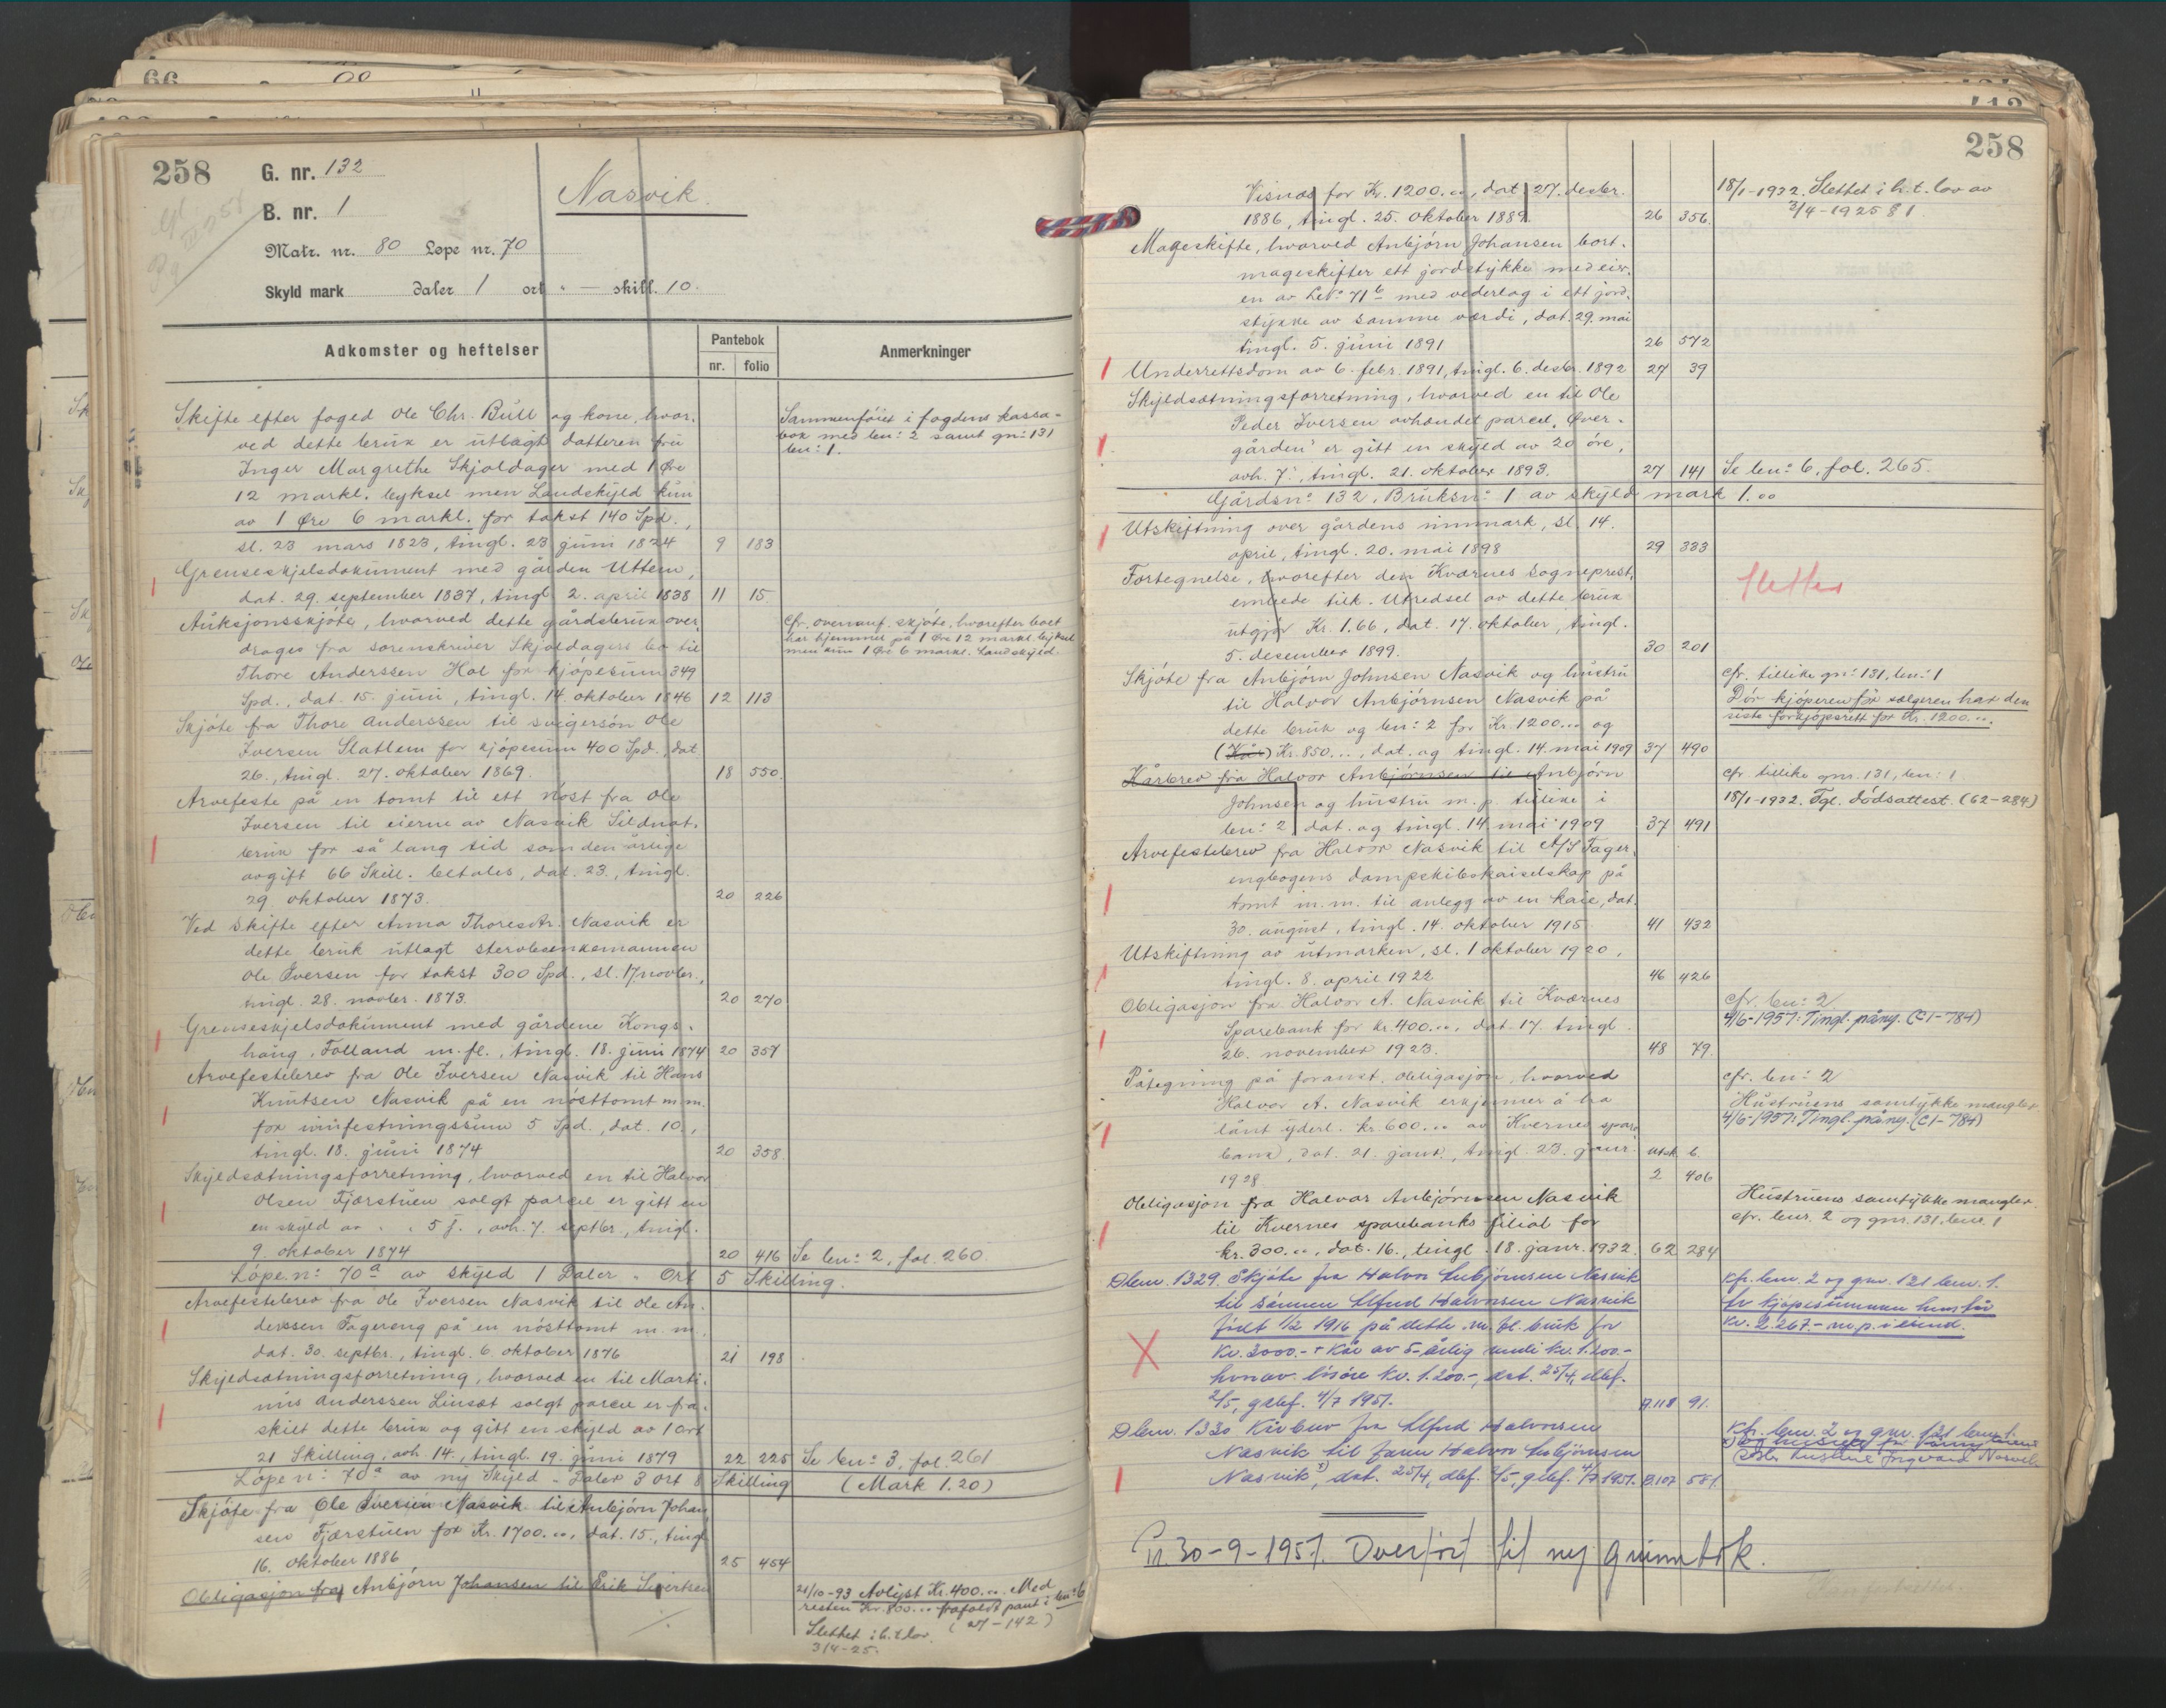 258
G. nr. 132
B. nr. 1
Nasvik.
Matr. nr. 80 Løpe nr. 70
Skyld mark daler 1 ort " — skill. 10.
Adkomster og heftelser
Pantebok
nr. folio
Anmerkninger
Skifte efter foged Ole Chr. Bull og kone, hvor-
ved dette bruk er utlagt datteren fru
Inger Margrethe Skjoldager med 1 Øre
12 markl. byksel men Landskyld kun
av 1 Øre 6 markl. for takst 140 Spd.,
sl. 23 mars 1823, tingl. 23 juni 1824 9 183
Sammenføiet i fogdens kassa-
bok med bn: 2 samt gn: 131
bn: 1.
Grenseskjelsdokument med gården Uttem,
dat. 29. september 1837, tingl. 2. april 1838 11 15
Auksjonsskjøte, hvorved dette gårdsbruk over-
drages fra sorenskriver Skjoldagers bo til
Thore Anderssen Hol for kjøpesum 349
Spd., dat. 15. juni, tingl. 14. oktober 1846 12 113
cfr. ovenanf. skjøte, hvorefter boet
har hjemmel på 1 Øre 12 markl. byksel
men kun 1 Øre 6 markl. Landskyld.
Skjøte fra Thore Anderssen til svigersøn Ole
Iversen Slatlem for kjøpesum 400 Spd., dat.
26., tingl. 27. oktober 1869. 18 550.
Arvefeste på en tomt til ett nøst fra Ole
Iversen til eierne av Nasvik Sildnot-
bruk for så lang tid som den årlige
avgift 66 Skill. betales, dat. 23., tingl.
29 oktober 1873. 20 226
Ved skifte efter Anna Thoresdtr. Nasvik er
dette bruk utlagt stervboenkemannen
Ole Iversen for takst 300 Spd., sl. 17. novbr.,
tingl. 28. novbr. 1873. 20 270
Grenseskjelsdokument med gårdene Kongs-
haug, Folland m.fl., tingl. 18. juni 1874 20 357
Arvefestebrev fra Ole Iversen Nasvik til Hans
Knutsen Nasvik på en nøsttomt m.m.
for innfestningssum 5 Spd., dat. 10.,
tingl. 18. juni 1874 20 358.
Skyldsætningsforretning, hvorved en til Halvor
Olsen Fjærstuen solgt parcel er gitt en
en skyld av " " 5 ƒ., avh. 7. septbr., tingl.
9. oktober 1874 20 416 Se bn: 2, fol. 260.
Løpe n: 70a av skyld 1 Daler " Ort 5 Skilling.
Arvefestebrev fra Ole Iversen Nasvik til Ole An-
derssen Fagereng på en nøsttomt m.m.
dat. 30. septbr., tingl. 6. oktober 1876 21 198.
Skyldsætningsforretning, hvorved en til Marti-
nus Anderssen Linset solgt parcel er fra-
skilt dette bruk og gitt en skyld av 1 ort
21 Skilling, avh. 14., tingl. 19. juni 1879 22 225 Se bn: 3, fol. 261
Løpe n: 70a av ny Skyld " Daler 3 Ort 8 Skilling (Mark 1.20)
Skjøte fra Ole Iversen Nasvik til Anbjørn Johan-
sen Fjærstuen for Kr. 1700.00, dat. 15., tingl.
16. oktober 1886 25 454
Obligasjon fra Anbjørn Johansen til Erik Sivertsen
21/10-93 Avlyst Kr. 400.00. Med
resten Kr. 800.00 frafaldt pant i bn: 6
(27-142)
Slettet i h.t. lov
3/4-25.
258
Visnæs for Kr. 1200.00, dat. 27. desbr.
1886, tingl. 25. oktober 1889. 26 356.
18/1-1932. Slettet i h.t. lov av
3/4-1925 § 1.
Mageskifte, hvorved Anbjørn Johansen bort-
mageskifter ett jordstykke med eier-
en av LN: 71b med vederlag i ett jord-
stykke av samme værdi, dat. 29. mai
tingl. 5. juni 1891 26 572
Underrettsdom av 6. febr. 1891, tingl. 6. desbr. 1892 27 39
Skyldsætningsforretning, hvorved en til Ole
Peder Iversen avhændet parcel, "Øver-
gården" er gitt en skyld av 20 øre,
avh. 7., tingl. 21. oktober 1893. 27 141 Se bn: 6, fol. 265.
Gårdsn: 132, Bruksn: 1 av skyld mark 1.00
Utskiftning over gårdens innmark, sl. 14.
april, tingl. 20. mai 1898 29 333
Fortegnelse, hvorefter den Kvernes sogneprest-
embede tilk. Utredsel av dette bruk
utgjør Kr. 1.66, dat. 17. oktober, tingl.
5. desember 1899. 30 201
Slettes
Skjøte fra Anbjørn Johnsen Nasvik og hustru
til Halvor Anbjørnsen Nasvik på
dette bruk og bn: 2 for Kr. 1200.00 og
(Kår) Kr. 850.00, dat. og tingl. 14. mai 1909 37 490
cfr. tillike gn: 131, bn: 1
Dør kjøperen før selgeren har den
siste forkjøpsrett for Kr. 1200.00.
Kårbrev fra Halvor Anbjørnsen til Anbjørn
Johnsen og hustru m.p. tillike i
bn: 2 dat. og tingl. 14. mai 1909 37 491
cfr. tillike gnr. 131, bn: 1
18/1-1932. Tgl. dødsattest. (62-284)
Arvefestebrev fra Halvor Nasvik til A/S Fager-
engbogens dampskibskaiselskap på
tomt m.m. til anlegg av en kaie, dat.
30. august, tingl. 14. oktober 1915 41 432
Utskiftning av utmarken, sl. 1 oktober 1920,
tingl. 8. april 1922 46 426
Obligasjon fra Halvor A. Nasvik til Kvernes
Sparebank for kr. 400.00, dat. 17. tingl.
26. november 1923. 48 79.
cfr. bn: 2
4/6-1957: Tingl. påny. (C1-784)
Påtegning på foranst. obligasjon, hvorved
Halvor A. Nasvik erkjenner å ha
lånt yderl. kr. 600.00 av Kvernes spare-
bank, dat. 21. janr., tingl. 23. janr.
1928 2 406
cfr. bn: 2
Hustruens samtykke mangler.
4/6-1957: Tingl. påny. (C1-784)
Obligasjon fra Halvor Anbjørnsen Nasvik
til Kvernes sparebanks filial for
kr. 300.00, dat. 16., tingl. 18. janr. 1932. 62 284
Hustruens samtykke mangler.
cfr. bnr. 2 og gnr. 131, bnr. 1
Dbnr. 1329. Skjøte fra Halvor Anbjørnsen Nasvik
til sønnen Alfred Halvorsen Nasvik
født 1/2 1916 på dette m.fl. bruk for
kr. 3000.- + kår av 5-årlig verdi kr. 1.200.-
hvorav løsøre kr. 1.200.-, dat. 25/4, dbf.
2/5, gbf. 4/7 1951. A.118 91.
Kfr. bnr. 2 og gnr. 131 bnr. 1.
Av kjøpesummen
kr. 2.267.- m.p. i eiend.
Dbnr. 1330 Kårbrev fra Alfred Halvorsen
Nasvik til faren Halvor Anbjørnsen
Nasvik x), dat. 25/4, dbf. 2/5, gbf. 4/7 1951. B.107 581.
Kfr. bnr. 2 og gnr. 131 bnr. 1.
30-9-1957. Overført til ny grunnbok.